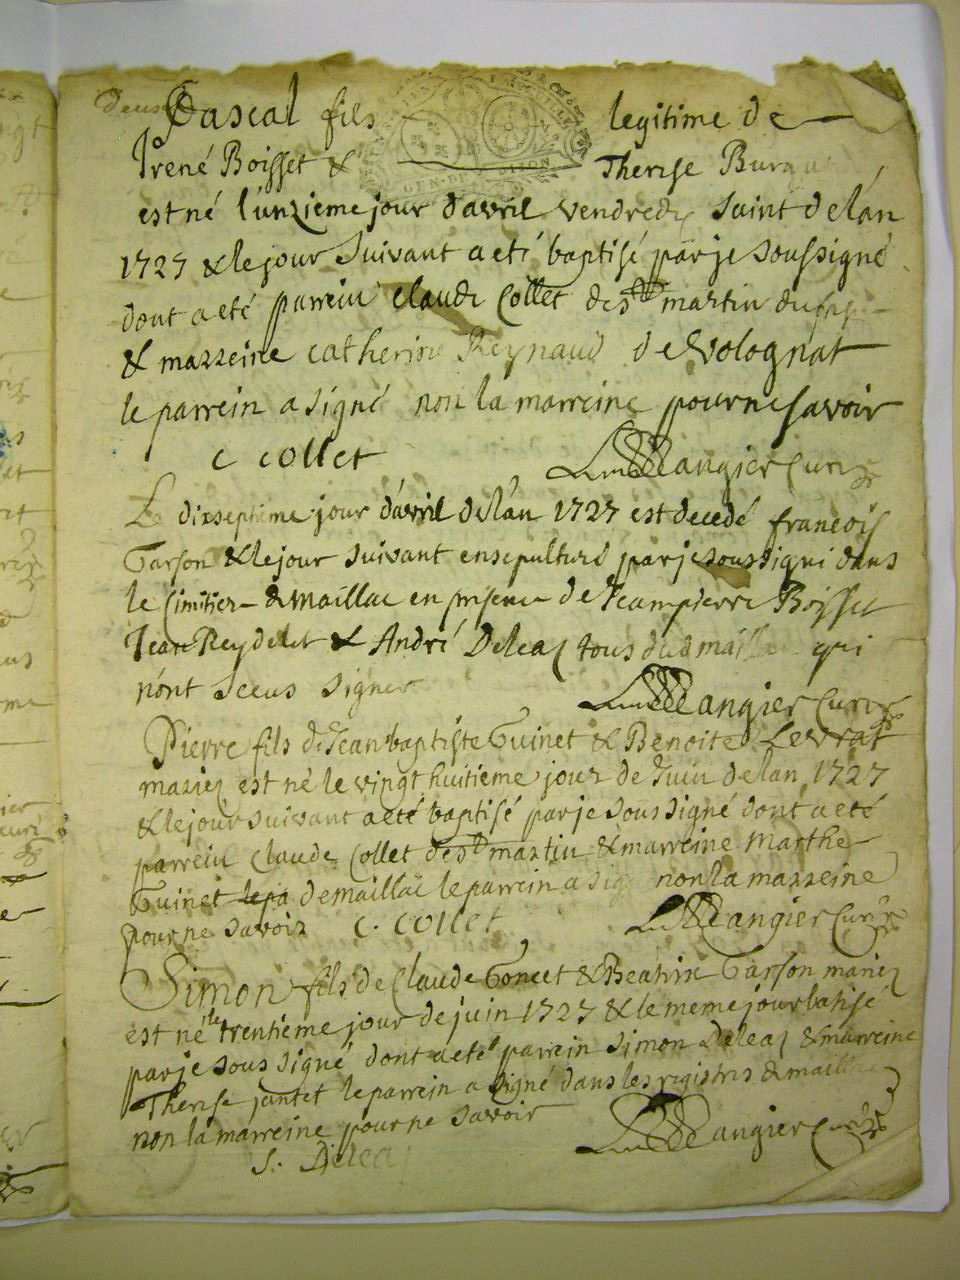 deux
Pascal fils legitime de
Irené Boisset & Therese
est né l'unzieme jour d'avril vendredy saint de lán
1727 & le jour suivant a eté baptisé par je soussigné
dont a eté parrein claude Collet de st martin du
& marreine catherine Reynaud de Volognat
le parrein a signé non la marreine pour ne savoir
C Collet Langier Curé
Le dixseptieme jour d'avril de lán 1727 est decedé francois
Garson & le jour suivant ensepulturé par je soussigné dans
le cimitier de maillac en presence de Jeampierre Boisset
Jean Reydelet & André Deleaz tous dud qui
n'ont sceus signer Langier Curé
Pierre fils de Jean baptiste Guinet & Benoite Levrat
mariez est né le vingt huitieme jour de Juin de lan 1727
& le jour suivant a eté baptisé par je soussigné dont a eté
parrein Claude Collet de st martin & marreine Marthe
Guinet le pa de maillac le parrein a sig non la marreine
pour ne savoir C. Collet Langier Curé
Simon fils de Claude Goncet & Beatrix Garson mariez
est né le trentieme jour de juin 1727 & le meme jour batisé
par je sous signé dont a eté parrein Simon Deleaz & marreine
Therese jantet le parrein a signé dans les registres de
non la marreine pour ne savoir Langier Curé
S. Delea